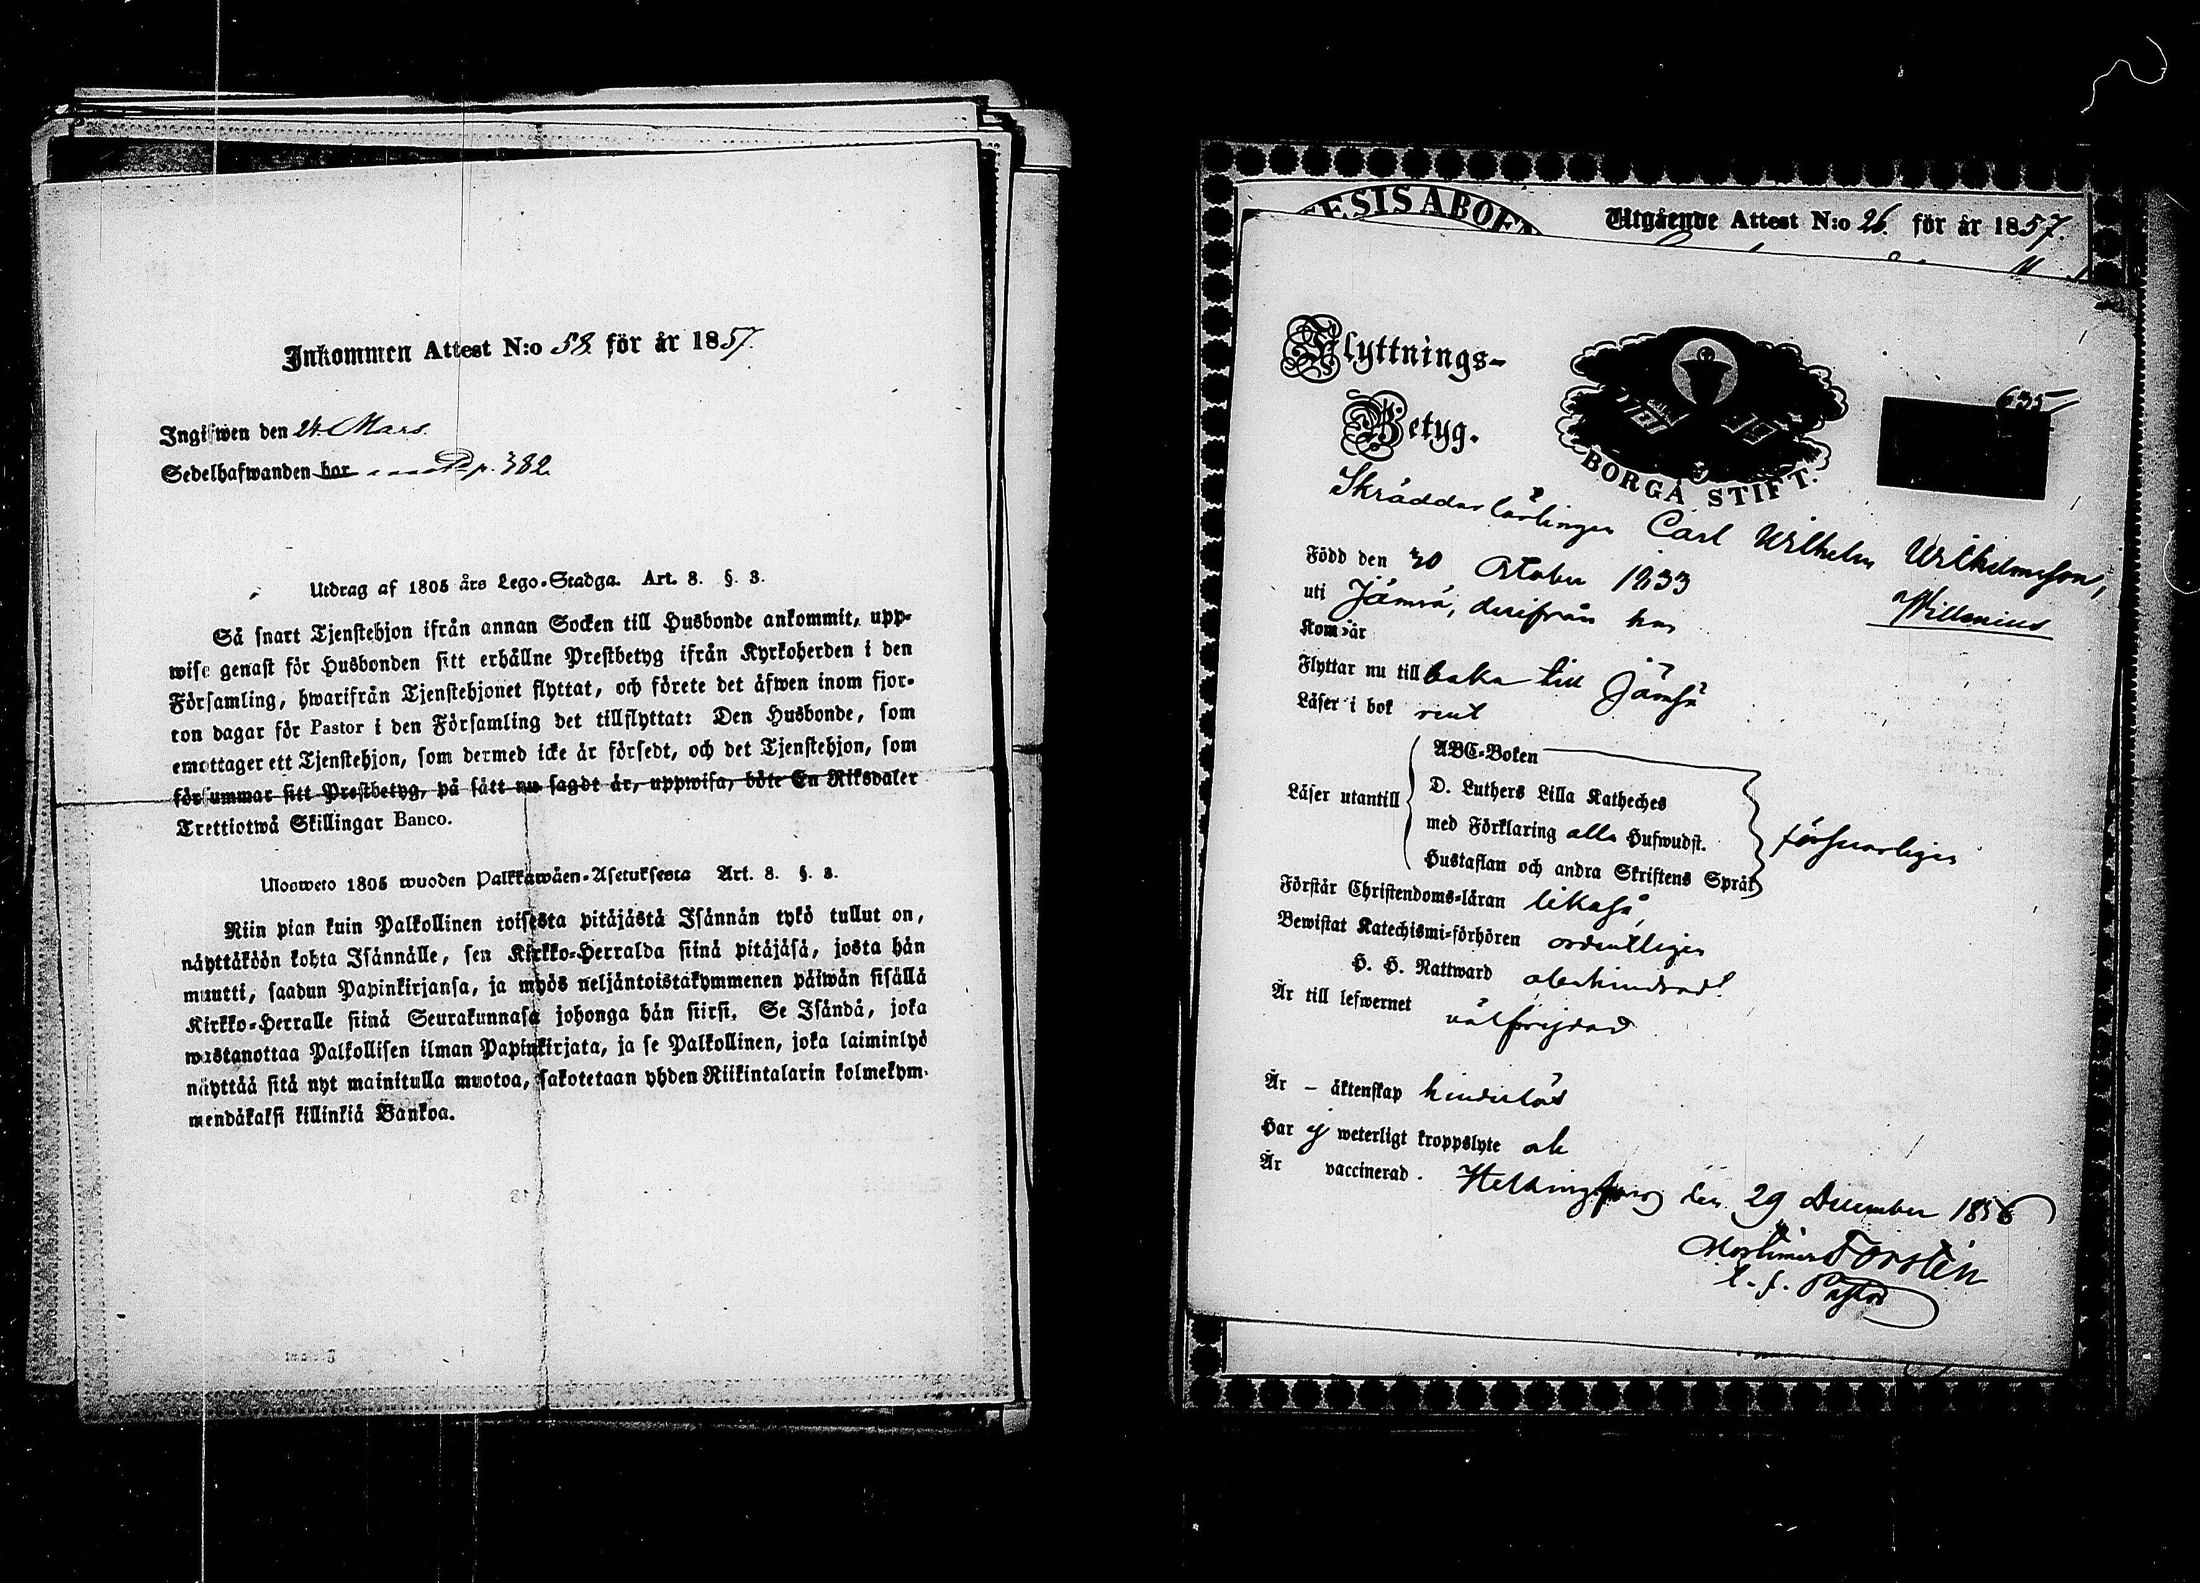 Inkommen Attest N:o 58. för år 1857.
Ingifwen den 24. Mars.
Sedelhafwanden bor p. 382.
Utdrag af 1805 års Lego-Stadga. Art. 8. §. 3.
Så snart Tjenstehjon ifrån annan Socken till Husbonde ankommit, upp-
wise genast för Husbonden sitt erhållne Prestbetyg ifrån Kyrkoherden i den
Församling, hwarifrån Tjenstehjonet flyttat, och förete det äfwen inom fjor-
ton dagar för Pastor i den Församling det tillflyttat: Den Husbonde, som
emottager ett Tjenstehjon, som dermed icke är försedt, och det Tjenstehjon, som
försummar sitt Prestbetyg, på sätt nu sagdt är, uppwisa, böte En Riksdaler
Trettiotwå Skillingar Banco.
Ulosweto 1805 wuoden Palkkawäen-Asetuksesta Art. 8. §. 3.
Niin pian kuin Palkollinen toisesta pitäjästä Isännän tykö tullut on,
näyttäköön kohta Isännälle, sen Kirkko-Herralda siinä pitäjäsä, josta hän
muutti, saadun Papinkirjansa, ja myös neljäntoistakymmenen päiwän sisällä
Kirkko-Herralle siinä Seurakunnasa johonga hän siirsi. Se Isändä, joka
wastanottaa Palkollisen ilman Papinkirjata, ja se Palkollinen, joka laiminlyö
näyttää sitä nyt mainitulla muotoa, sakotetaan yhden Riikintalarin kolmekym-
mendäkaksi killinkiä Bankoa.
ESIS ABOE
Utgående Attest N:o 26. för år 1857.
Flyttnings-
Betyg.
BORGÅ STIFT.
635
Skräddarlärlingen Carl Wilhelm Wilhelmsson,
Willenius
Född den 30 October 1833
uti Jämsä, derifrån han
Kom är
Flyttar nu till baka till Jämsä
Läser i bok rent
Läser utantill
ABC-Boken
D. Luthers Lilla Katheches
med Förklaring alla Hufwudst.
Hustaflan och andra Skriftens Språk
försvarligen
Förstår Christendoms-läran likaså
Bewistat Katechismi-förhören ordentligen
H. H. Nattward obehindrad
Är till lefwernet välfrejdad
Är – äktenskap hinderlös
Har ej weterligt kroppslyte ock
Är vaccinerad. Helsingfors den 29 December 1856
Mortimer Forstén
t. f. Pastor